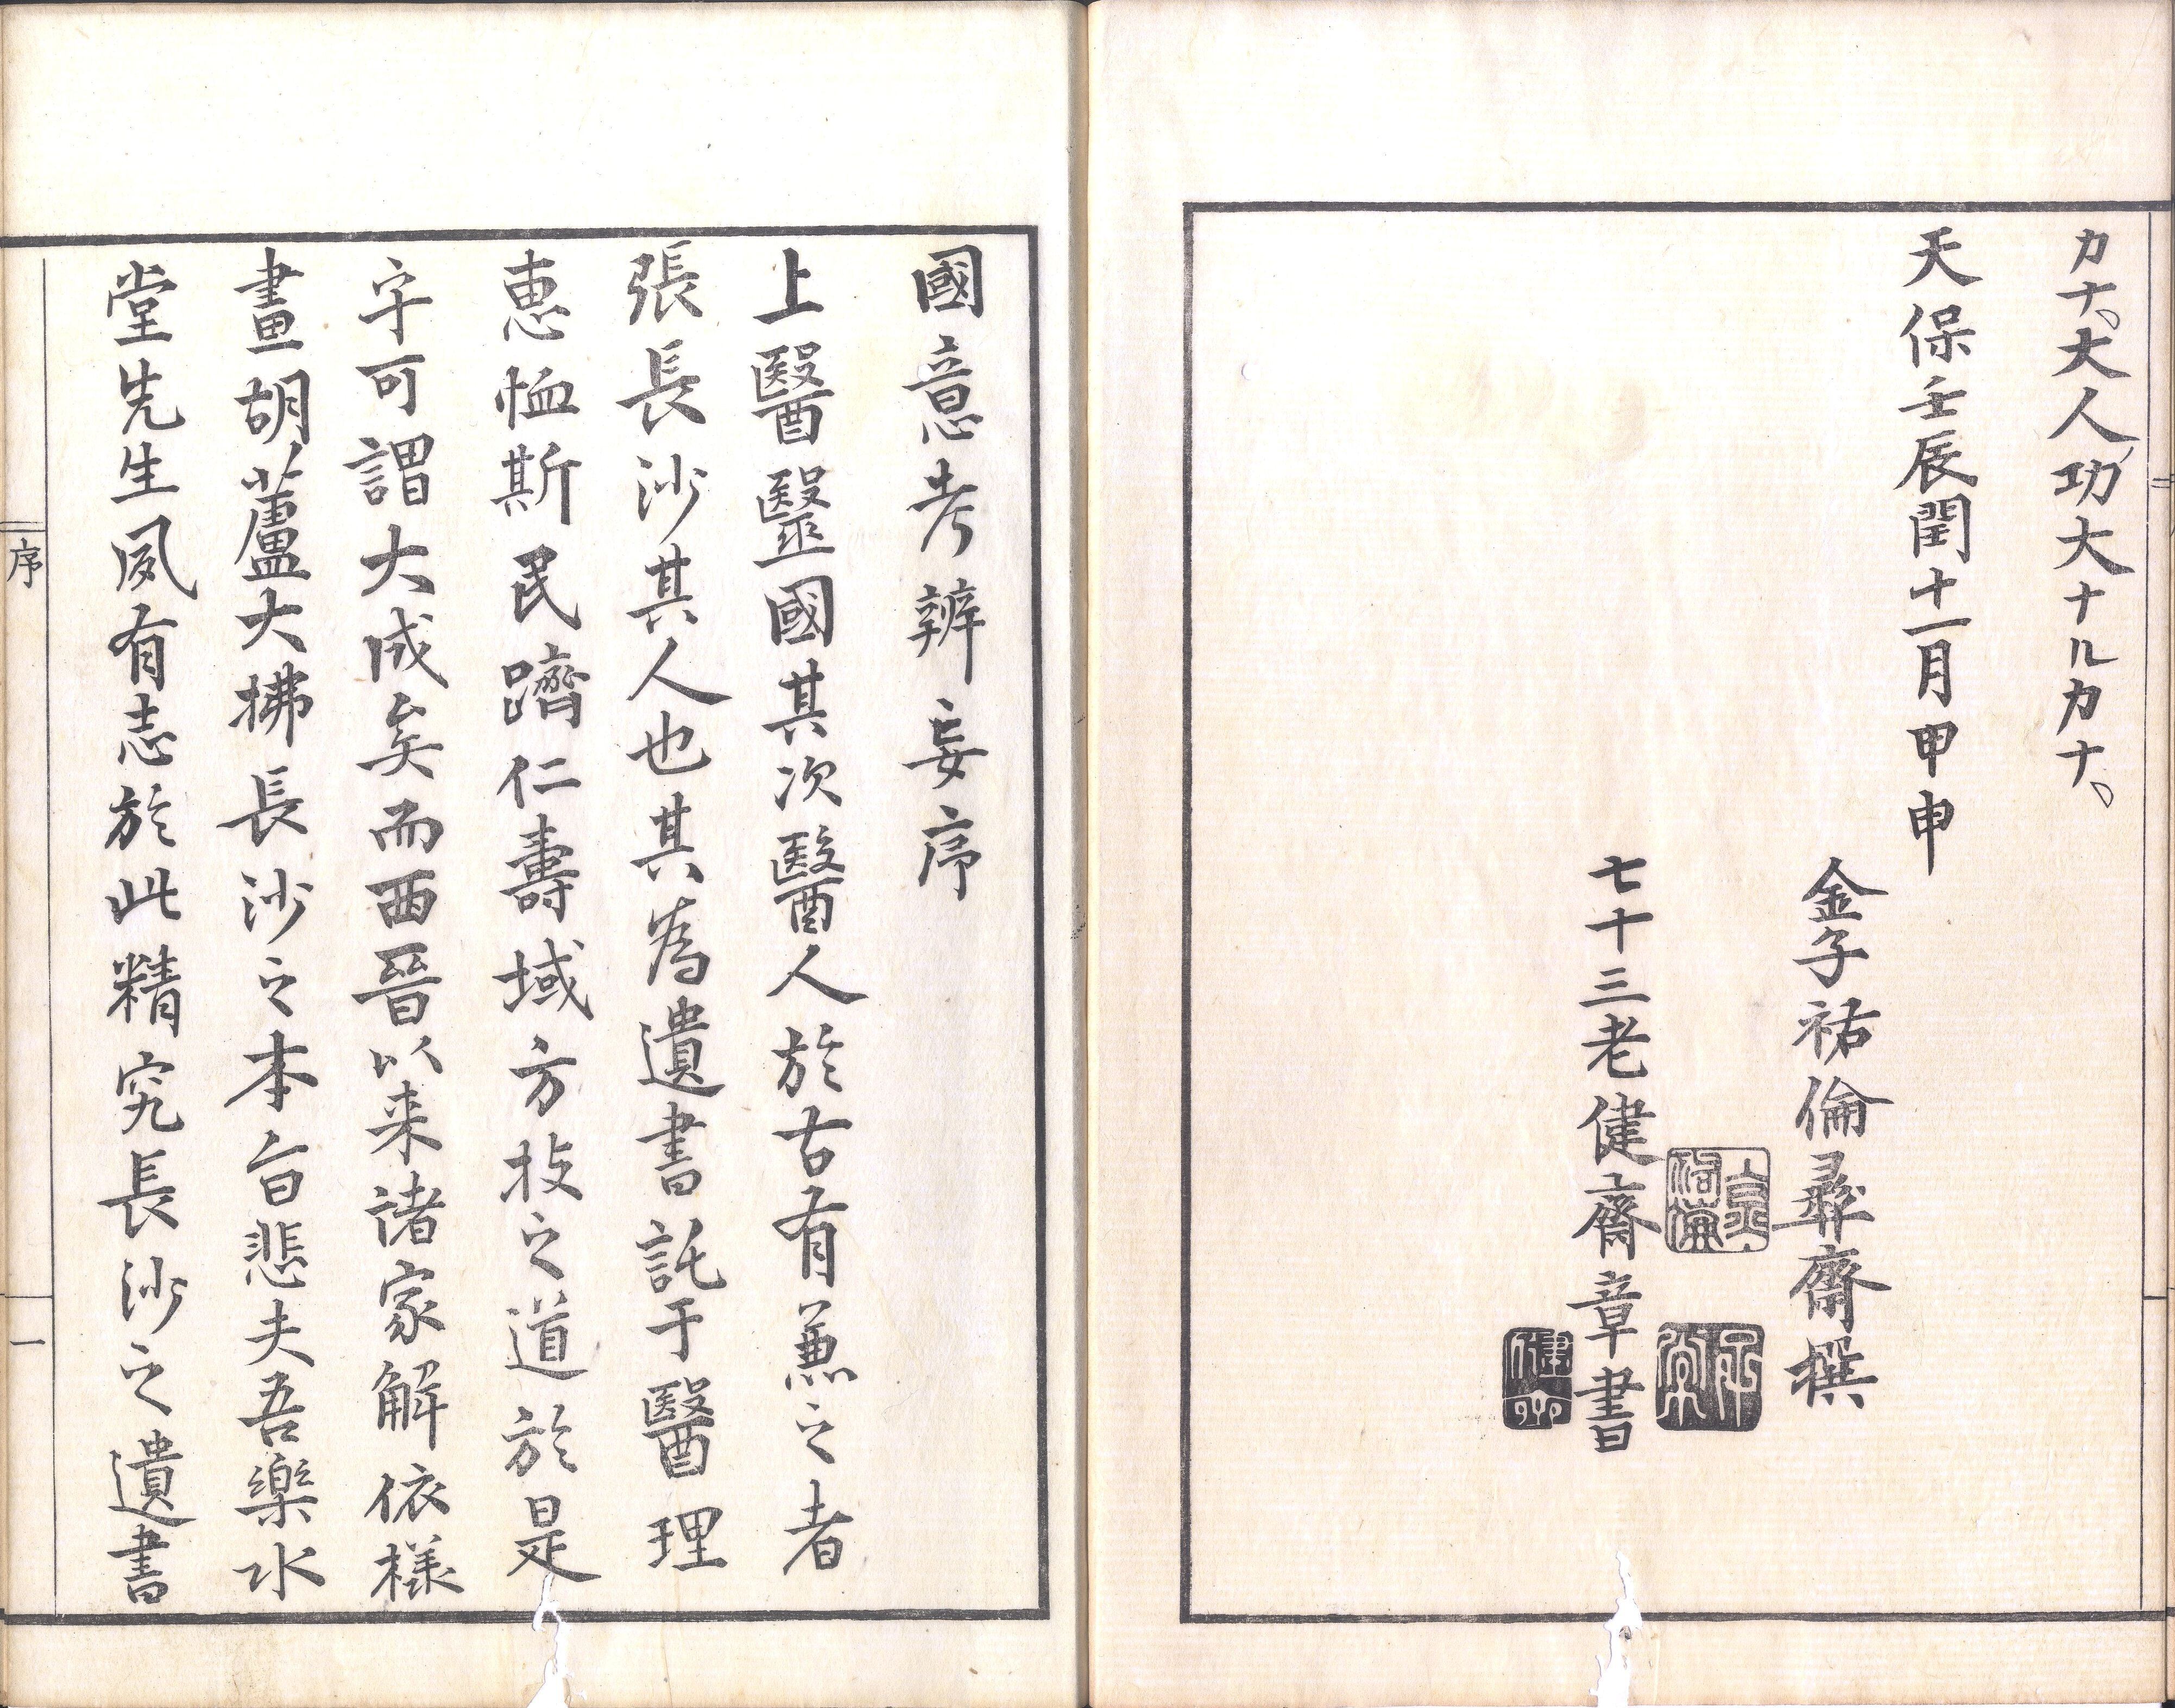 カナ、大人功大ナルカナ、
天保壬辰閏十一月甲申
金子祐倫彛齋撰
七十三老健齋章書
國意考辨妄序
上醫毉國其次醫人於古有蒹之者
張長沙其人也其為遺書託于醫理
恵恤斯民躋仁壽域方技之道於是
乎可謂大成矣而西晉以来諸家解依様
畫胡蘆大拂長沙之本旨悲夫吾樂水
堂先生夙有志於此精究長沙之遺書
序
一